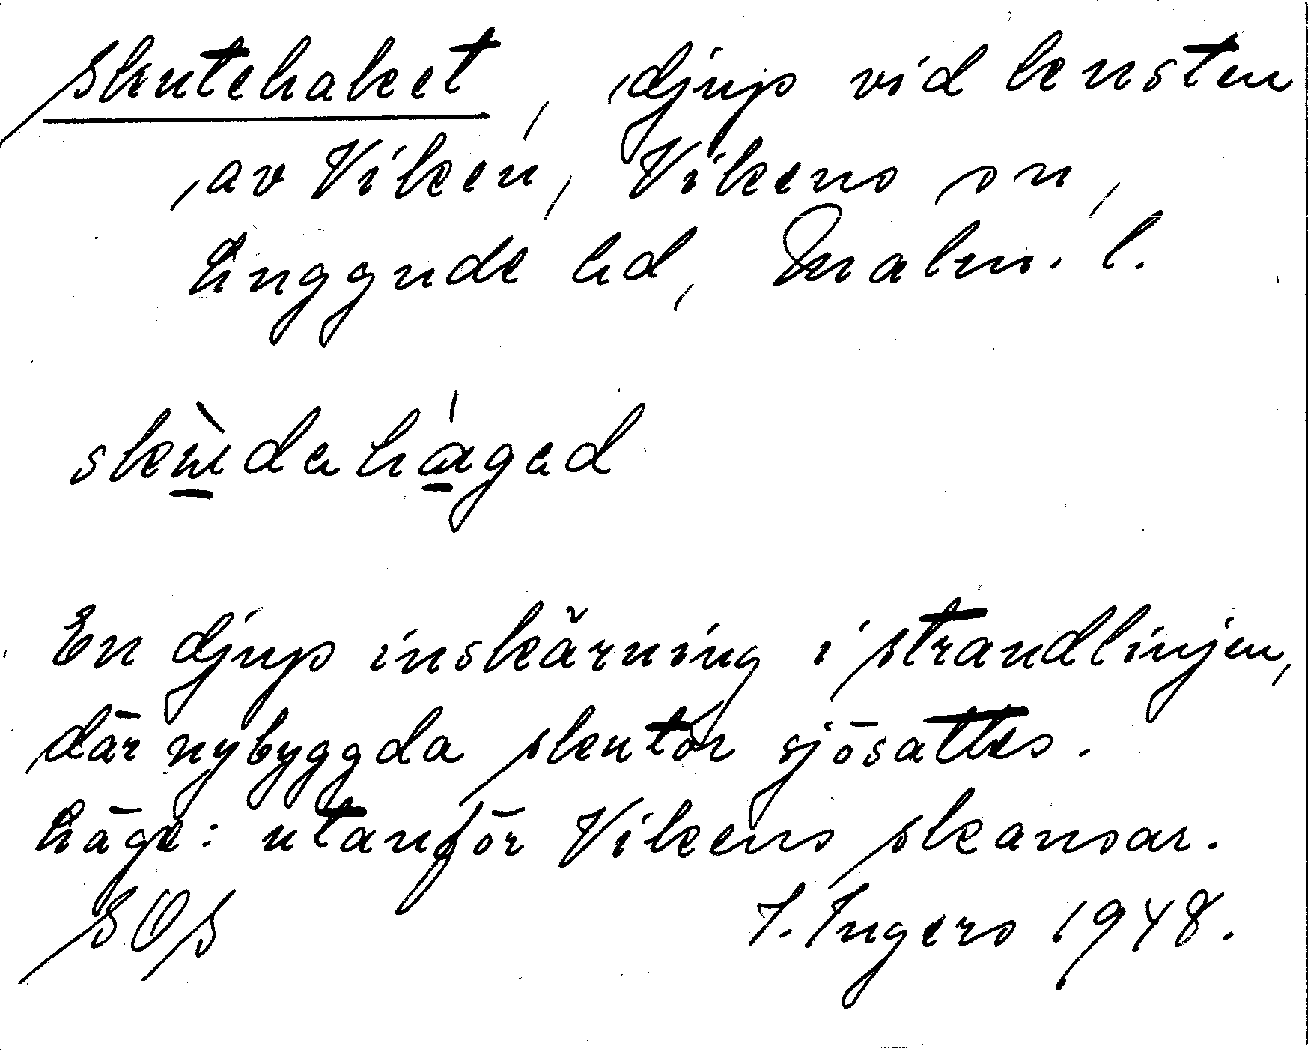 Skutehaket, djup vid kusten
av Viken, Vikens sn,
Luggude hd, Malm. l.
skùdahágad
En djup inskärning i strandlinjen,
där nybyggda skutor sjösattes.
Läge: utanför Vikens skansar.
SOS I. Ingers 1948.